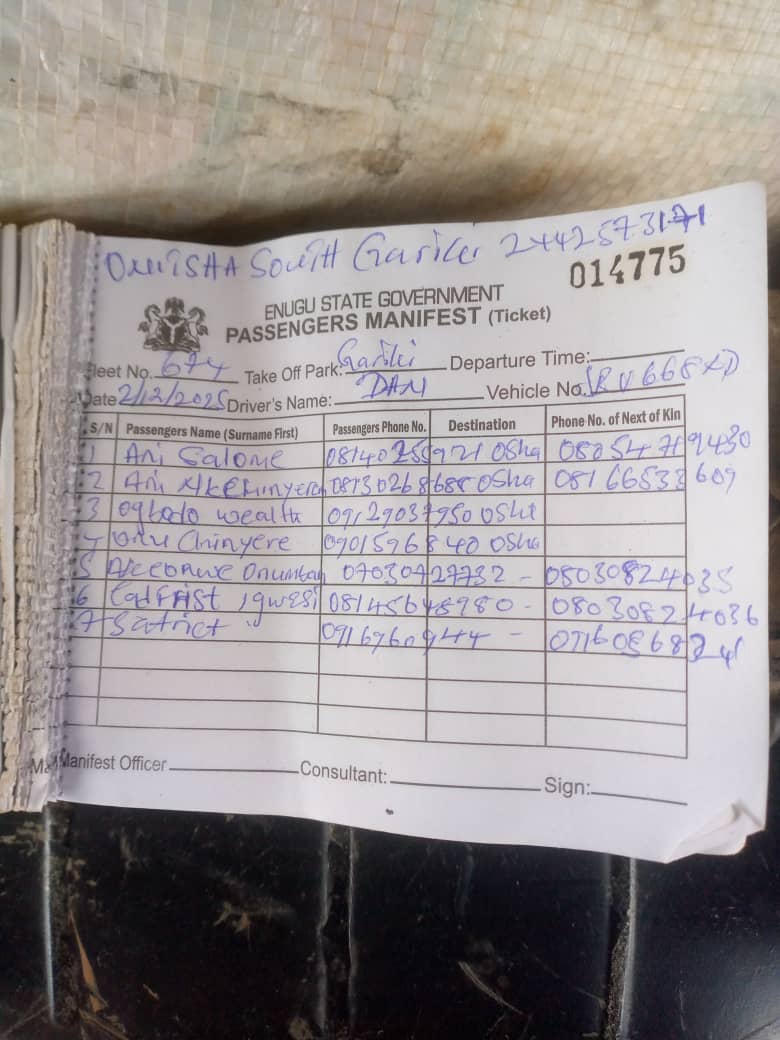 ONITSHA SOUTH Gariki 2442573171
014775
ENUGU STATE GOVERNMENT
PASSENGERS MANIFEST (Ticket)
Fleet No. 674 Take Off Park: Gariki Departure Time:
Date 2/12/2025 Driver's Name: DAN Vehicle No.
S/N Passengers Name (Surname First) Passengers Phone No. Destination Phone No. of Next of Kin
1 Ani Salome 08140255921 Osha 08054719430
2 Ani 08130268688 Osha 08166533609
3 ogbodo wealth 09129037950 Osha
4 Chinyere 0901596840 Osha
5 07030427732 - 08030824035
6 08145648980 - 08030824036
7 09167610944 -
Manifest Officer Consultant: Sign: